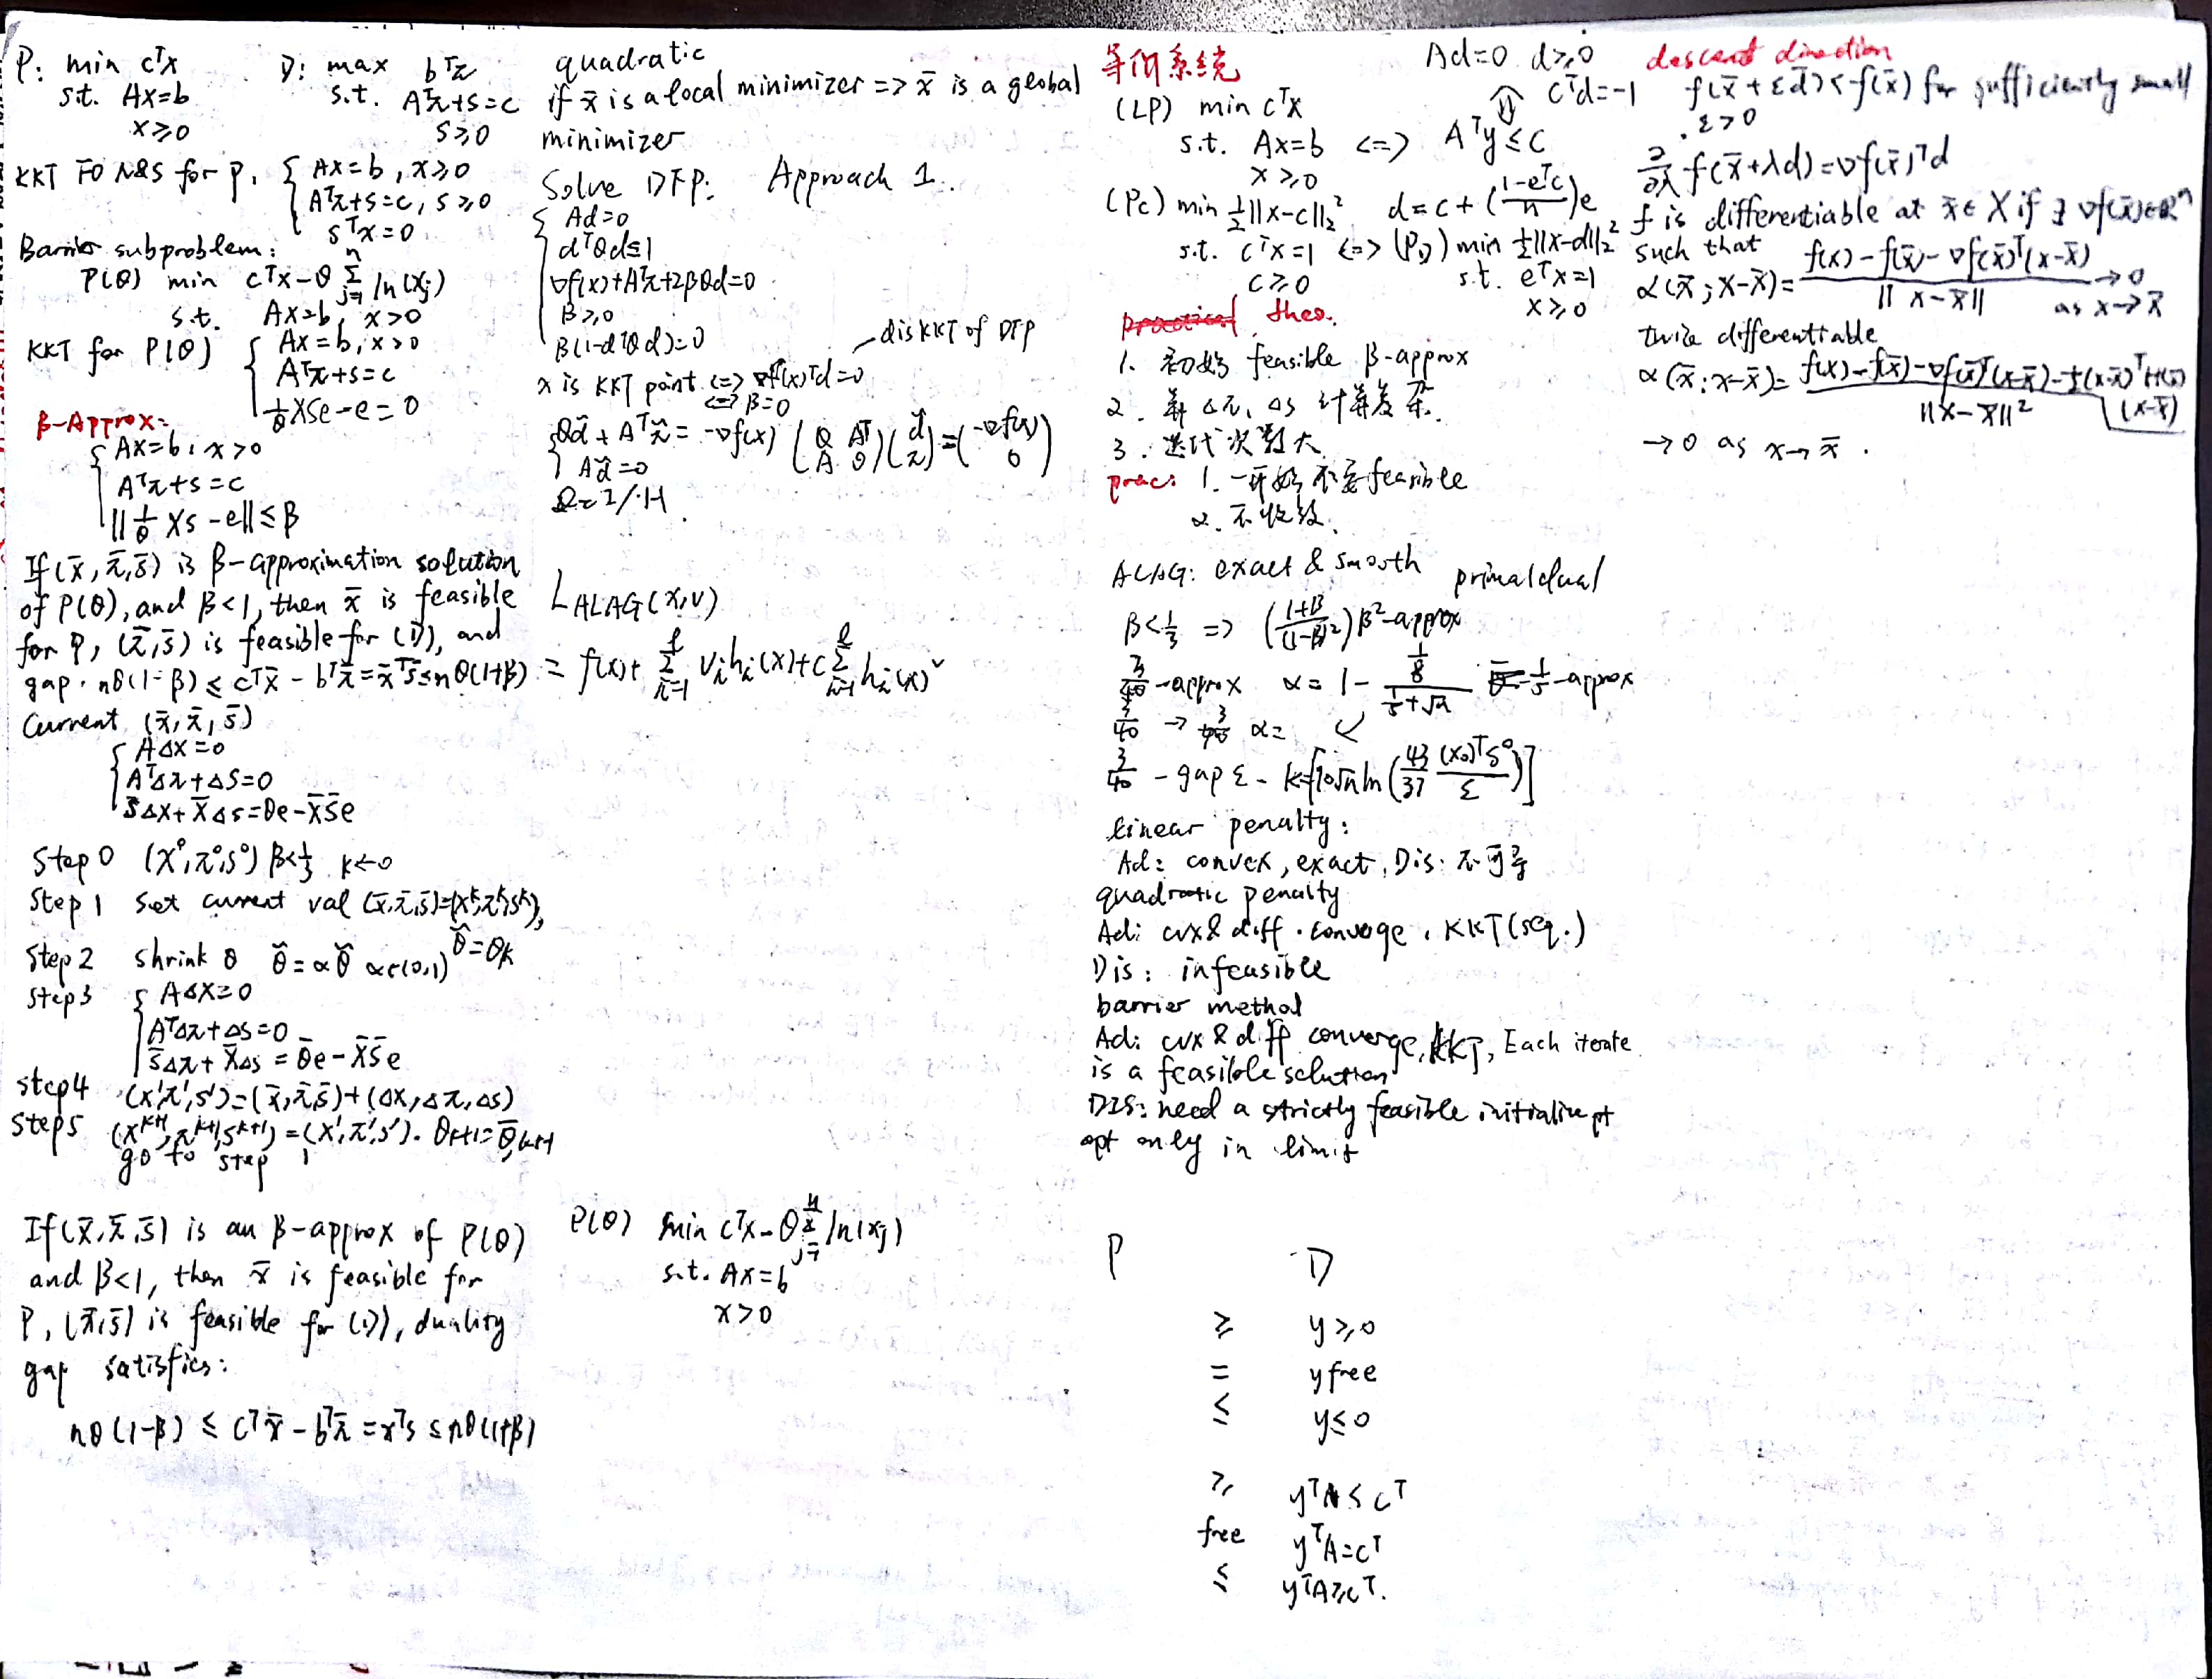 P: min cᵀx
s.t. Ax=b
x≥0
D: max bᵀπ
s.t. Aᵀπ+s=c
s≥0
KKT FO N&S for P. { Ax=b, x≥0
Aᵀπ+s=c, s≥0
sᵀx=0
Barrier subproblem:
P(θ) min cᵀx-θ Σⱼ₌₁ⁿ ln(xⱼ)
s.t. Ax=b, x>0
KKT for P(θ) { Ax=b, x>0
Aᵀπ+s=c
1/θ XSe-e=0
β-Approx:
{ Ax=b, x>0
Aᵀπ+s=c
||1/θ Xs-e||≤β
If (x̄, π̄, s̄) is β-approximation solution
of P(θ), and β<1, then x̄ is feasible
for P, (π̄, s̄) is feasible for (D), and
gap. nθ(1-β) ≤ cᵀx̄-bᵀπ̄=x̄ᵀs̄≤nθ(1+β)
Current (x̄, π̄, s̄)
{ AΔx=0
AᵀΔπ+Δs=0
S̄Δx+X̄Δs=θe-X̄S̄e
Step 0 (x⁰, π⁰, s⁰) β<1/3 k←0
Step 1 Set current val (x̄, π̄, s̄)=(xᵏ, πᵏ, sᵏ),
θ̆=θk
Step 2 shrink θ θ̄=αθ̆ α∈(0,1)
Step 3 { AΔx=0
AᵀΔπ+Δs=0
S̄Δx+X̄Δs=θ̄e-X̄S̄e
Step 4 (x',π',s')=(x̄,π̄,s̄)+(Δx,Δπ,Δs)
Step 5 (xᵏ⁺¹,πᵏ⁺¹,sᵏ⁺¹)=(x',π',s'). θk+1=θ̄, k+1
go to step 1
If (x̄, π̄, s̄) is an β-approx of P(θ)
and β<1, then x̄ is feasible for
P, (π̄, s̄) is feasible for (D), duality
gap satisfies:
nθ(1-β) ≤ cᵀx̄-bᵀπ̄=xᵀs≤nθ(1+β)
quadratic
if x̄ is a local minimizer => x̄ is a global
minimizer
Solve DFP: Approach 1.
{ Ad=0
dᵀQd≤1
∇f(x)+Aᵀπ+2βQd=0
β≥0
β(1-dᵀQd)=0
d is KKT of DFP
x is KKT point <=> ∇f(x)ᵀd=0
<=> β=0
{ Qd̃+Aᵀπ̃=-∇f(x) (Q Aᵀ; A 0)(d̃; π)=(-∇f(x); 0)
Ad̃=0
Q=I/H
L ALAG(x,v)
= f(x)+Σᵢ₌₁ˡ vᵢhᵢ(x)+cΣᵢ₌₁ˡ hᵢ(x)²
P(θ) min cᵀx-θ Σⱼ₌₁ⁿ ln(xⱼ)
s.t. Ax=b
x>0
等价系统
Ad=0 d≥0
cᵀd=-1
(LP) min cᵀx
s.t. Ax=b <=> Aᵀy≤c
x≥0
(Pc) min ½||x-c||₂² d=c+((1-eᵀc)/n)e
s.t. cᵀx=1 <=> (PD) min ½||x-d||₂²
c≥0
s.t. eᵀx=1
x≥0
theo.
1. 初始 feasible β-approx
2. 算 Δπ, Δs 计算复杂.
3. 迭代次数大
prac: 1. 一开始不定feasible
2. 不收敛.
ALAG: exact & smooth primal dual
β<1/3 => ((1+β)/(1-β)²)β²-approx
3/40-approx α=1-(1/8)/(1/5+√n) 1/5-approx
3/40 → 3/40 α=
3/40 - gap ε - k=⌈10√n ln(43/37 (x₀)ᵀs⁰/ε)⌉
linear penalty:
Ad: convex, exact, Dis: 不可导
quadratic penalty
Ad: cvx & diff. converge, KKT(seq.)
Dis: infeasible
barrier method
Ad: cvx & diff converge, KKT, Each iterate
is a feasible solution
DIS: need a strictly feasible initialize pt
opt only in limit
P D
≥ y≥0
= y free
≤ y≤0
≥ yᵀA≤cᵀ
free yᵀA=cᵀ
≤ yᵀA≥cᵀ.
descent direction
f(x̄+εd̄)<f(x̄) for sufficiently small
ε>0
∂/∂λ f(x̄+λd)=∇f(x̄)ᵀd
f is differentiable at x̄∈X if ∃ ∇f(x̄)∈Rⁿ
such that
α(x̄;x-x̄)=(f(x)-f(x̄)-∇f(x̄)ᵀ(x-x̄))/||x-x̄|| →0
as x→x̄
twice differentiable
α(x̄;x-x̄)=(f(x)-f(x̄)-∇f(x̄)ᵀ(x-x̄)-½(x-x̄)ᵀH(x̄)(x-x̄))/||x-x̄||²
→0 as x→x̄.